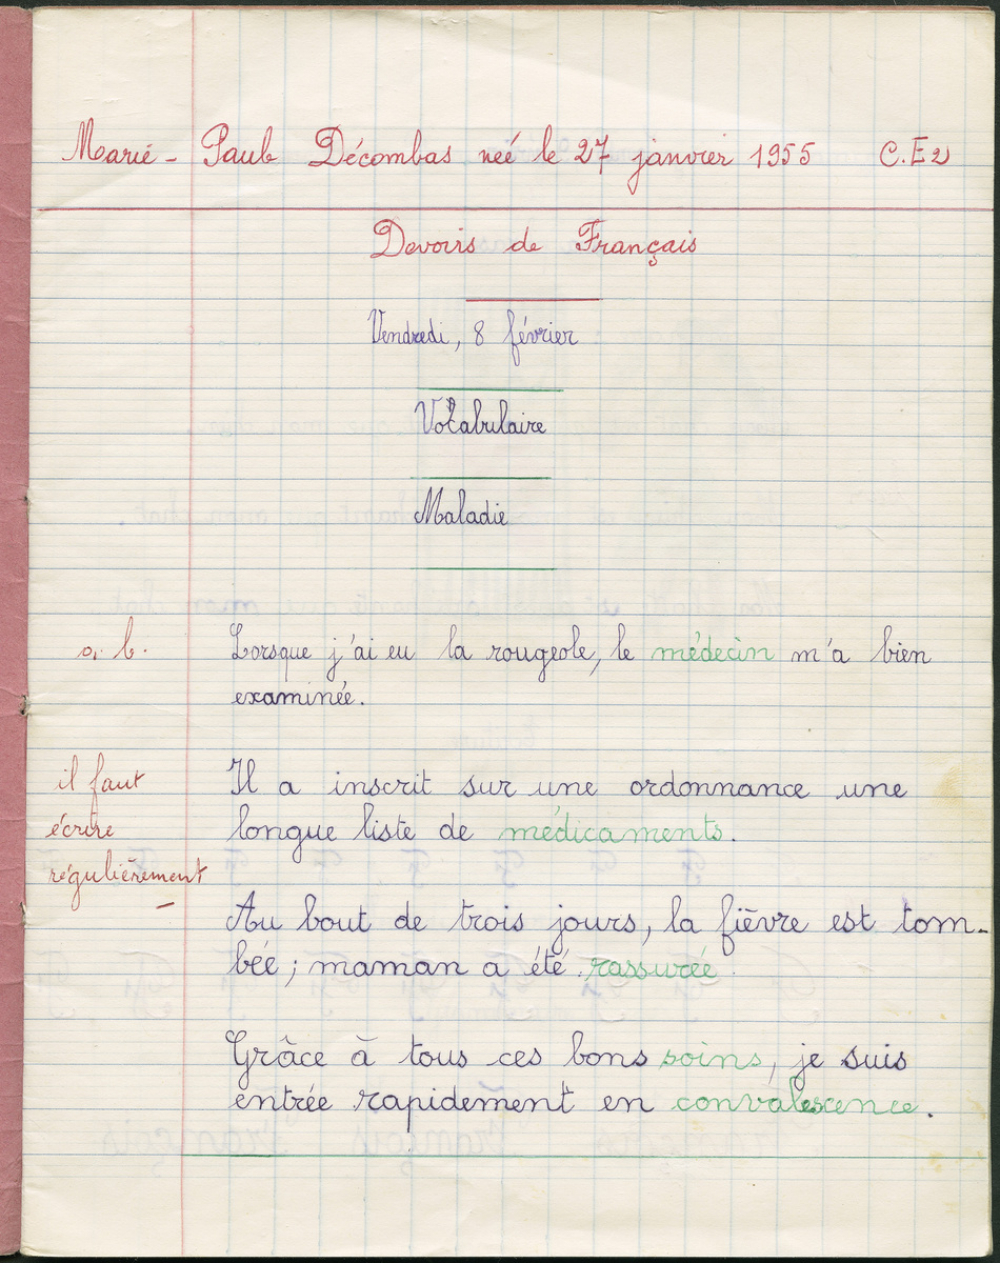 Marie - Paule Décombas, neé le 27 janvier 1955 C.E2
Devoirs de Français
Vendredi, 8 février
Vocabulaire
Maladie
a. b. Lorsque j'ai eu la rougeole, le médecin m'a bien
examinée.
il faut
écrire
régulièrement
Il a inscrit sur une ordonnance une
longue liste de médicaments.
Au bout de trois jours, la fièvre est tom-
bée ; maman a été rassurée.
Grâce à tous ces bons soins, je suis
entrée rapidement en convalescence.